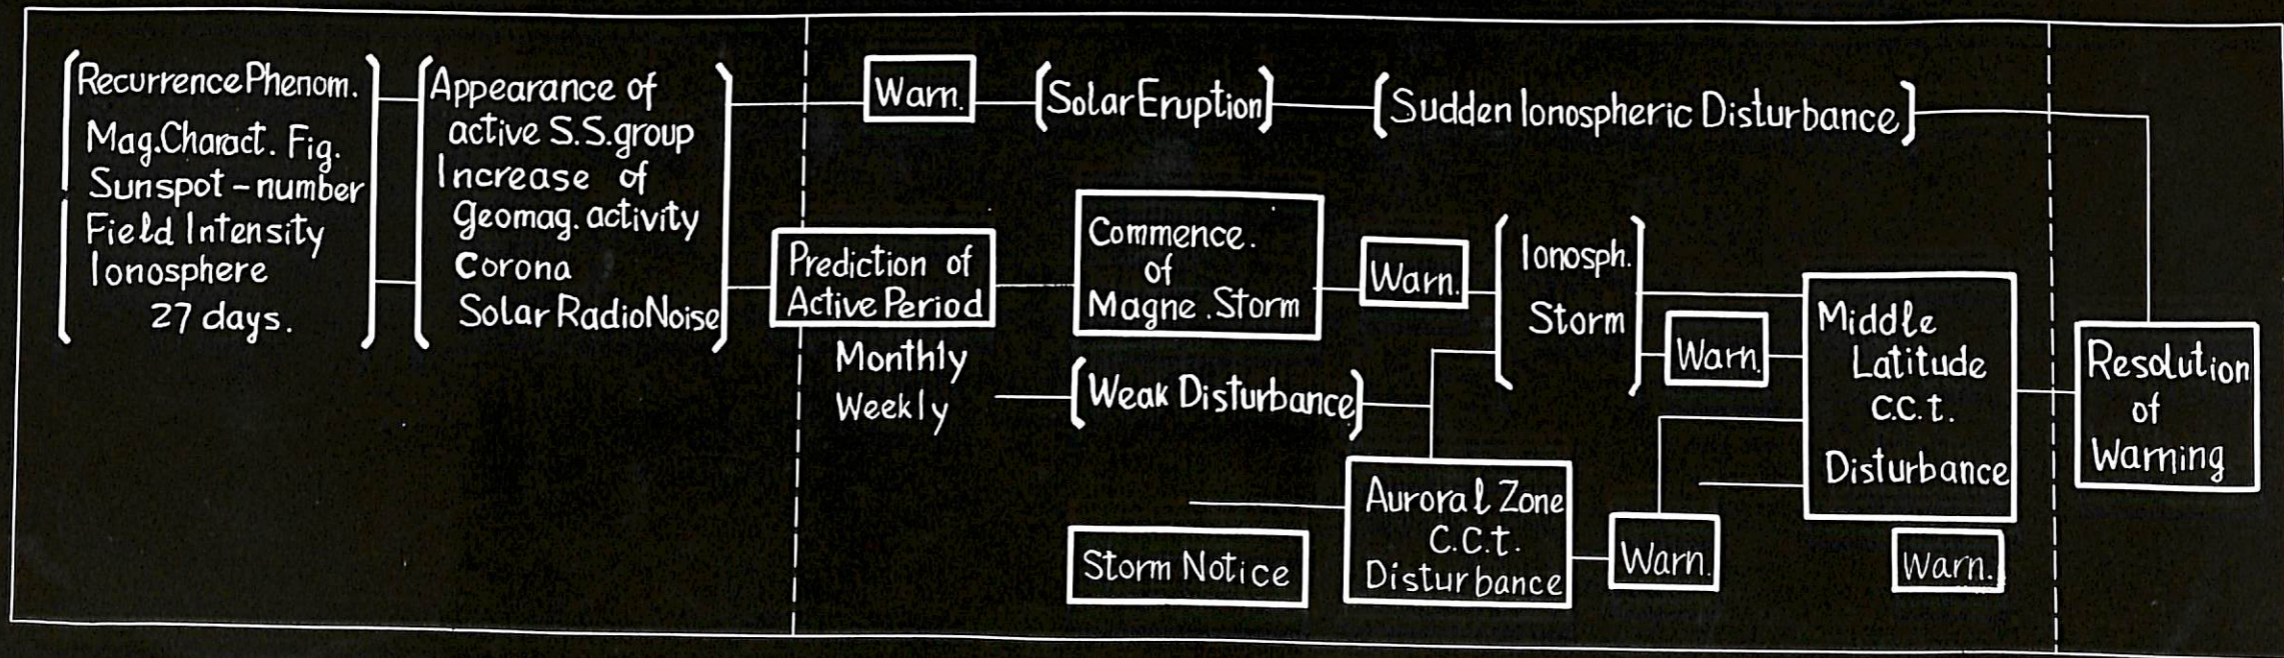 Recurrence Phenom.
Mag.Charact. Fig.
Sunspot-number
Field Intensity
Ionosphere
27 days.
Appearance of
active S.S.group
Increase of
geomag. activity
Corona
Solar Radio Noise
Warn.
Solar Eruption
Sudden Ionospheric Disturbance
Prediction of
Active Period
Monthly
Weekly
Commence.
of
Magne.Storm
Warn.
Ionosph.
Storm
Weak Disturbance
Warn.
Storm Notice
Auroral Zone
C.C.t.
Disturbance
Warn.
Middle
Latitude
C.C.t.
Disturbance
Warn.
Resolution
of
Warning